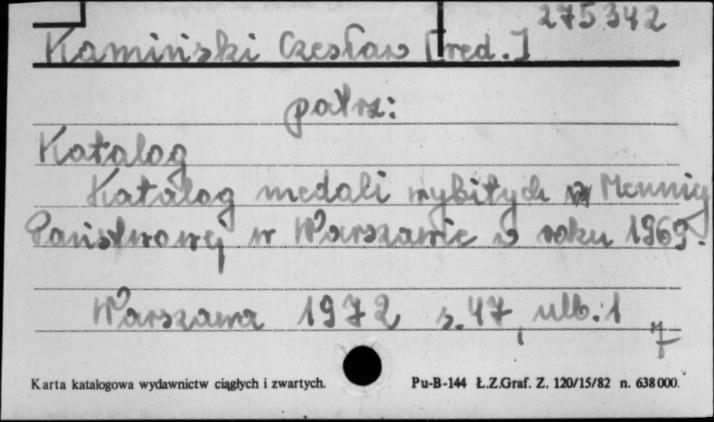 275342
Kamiński Czesław [red.]
patrz:
Katalog
Katalog medali wybitych w Mennicy
Państwowej w Warszawie w roku 1969.
Warszawa 1972 s. 47, ulb. 1
Karta katalogowa wydawnictw ciągłych i zwartych.
Pu-B-144 Ł.Z.Graf. Z. 120/15/82 n. 638000.